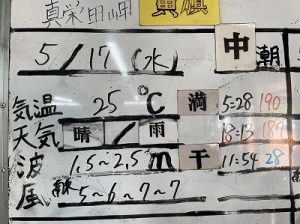 真栄田岬 黄旗
5/17(水) 中潮
気温 25℃ 満 5:28 190
天気 晴/雨 18:13 189
波 1.5~2.5m 干 11:54 28
風 南 5~6~7~7